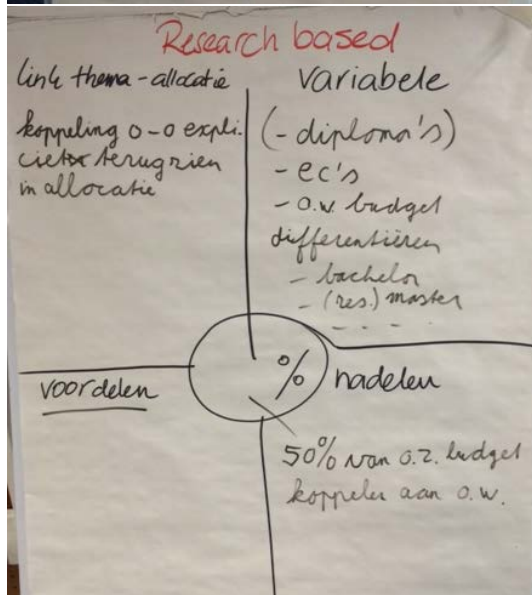 Research based
link thema - allocatie
koppeling o-o expli.
ciet terugzien
in allocatie
variabele
(- diploma's)
- ec's
- o.w. budget
differentiëren
- bachelor
- (res.) master
- - - -
%
voordelen
nadelen
50% van o.z. budget
koppelen aan o.w.